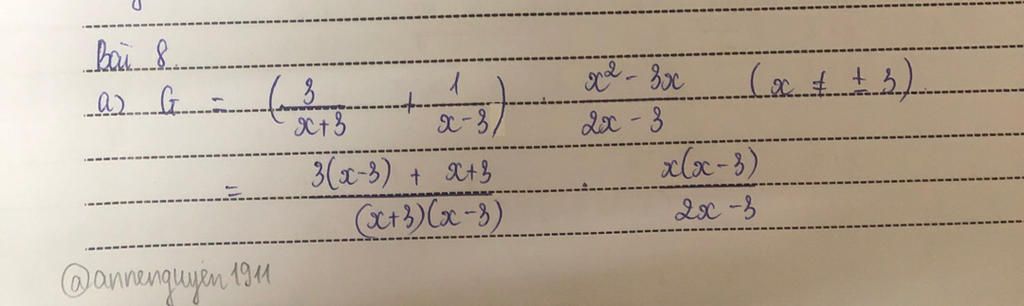 Bài 8.
a) G = (3/(x+3) + 1/(x-3)) . (x² - 3x)/(2x - 3) (x ≠ ± 3).
= (3(x-3) + x+3)/((x+3)(x-3)) . (x(x-3))/(2x-3)
@annenguyen1911